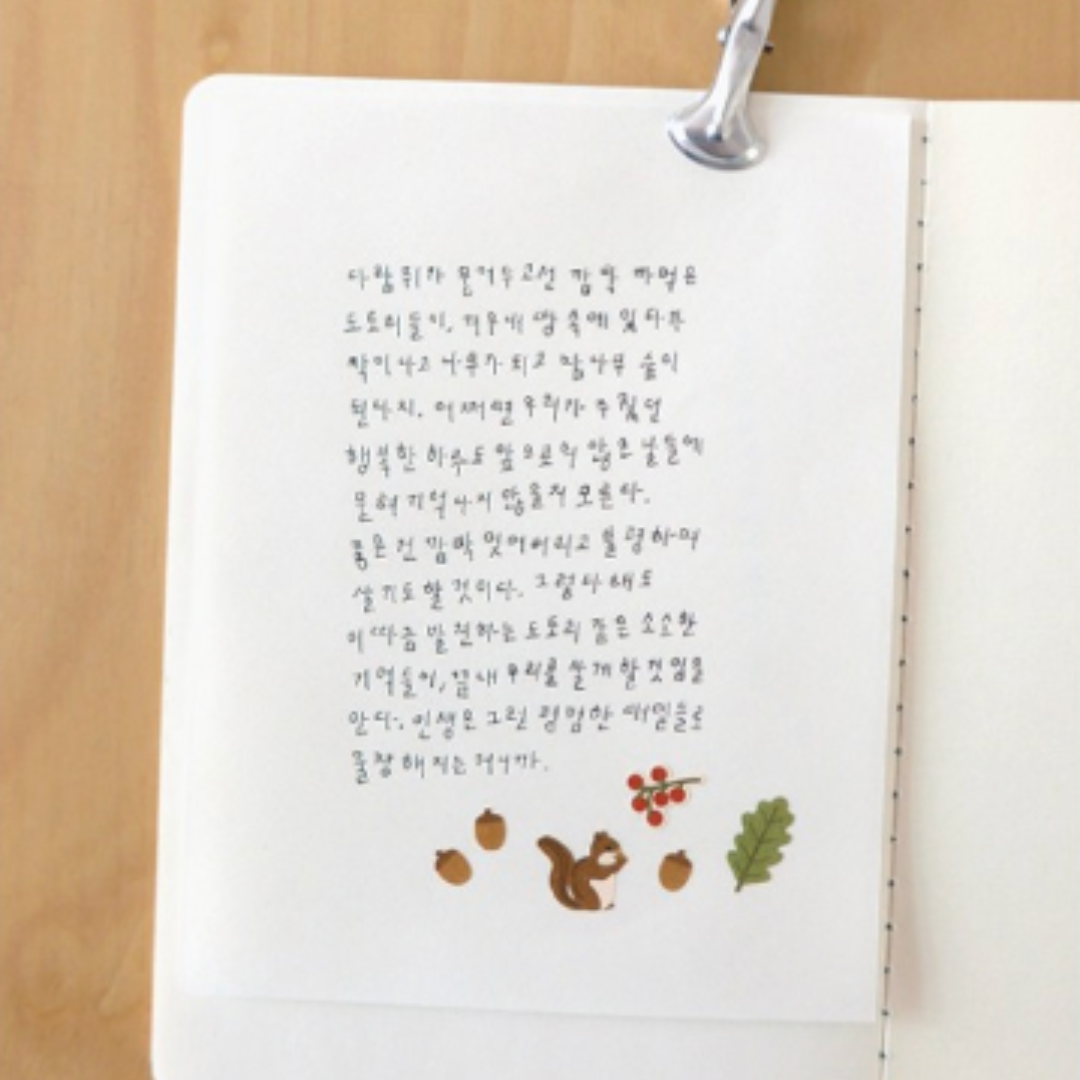 다람쥐가 묻어두고선 깜빡 까먹은
도토리들이, 겨우내 땅 속에 있다 튼
싹이 나고 나무가 되고 참나무 숲이
된다지. 어쩌면 우리가 주웠던
행복한 하루도 앞으로의 많은 날들에
묻혀 기억나지 않을지 모른다.
좋은 건 깜빡 잊어버리고 불평하며
살기도 할 것이다. 그렇다 해도
이따금 발견하는 도토리 같은 소소한
기억들이, 끝내 우리를 살게 할 것임을
안다. 인생은 그런 평범한 매일들로
울창해지는 거니까.